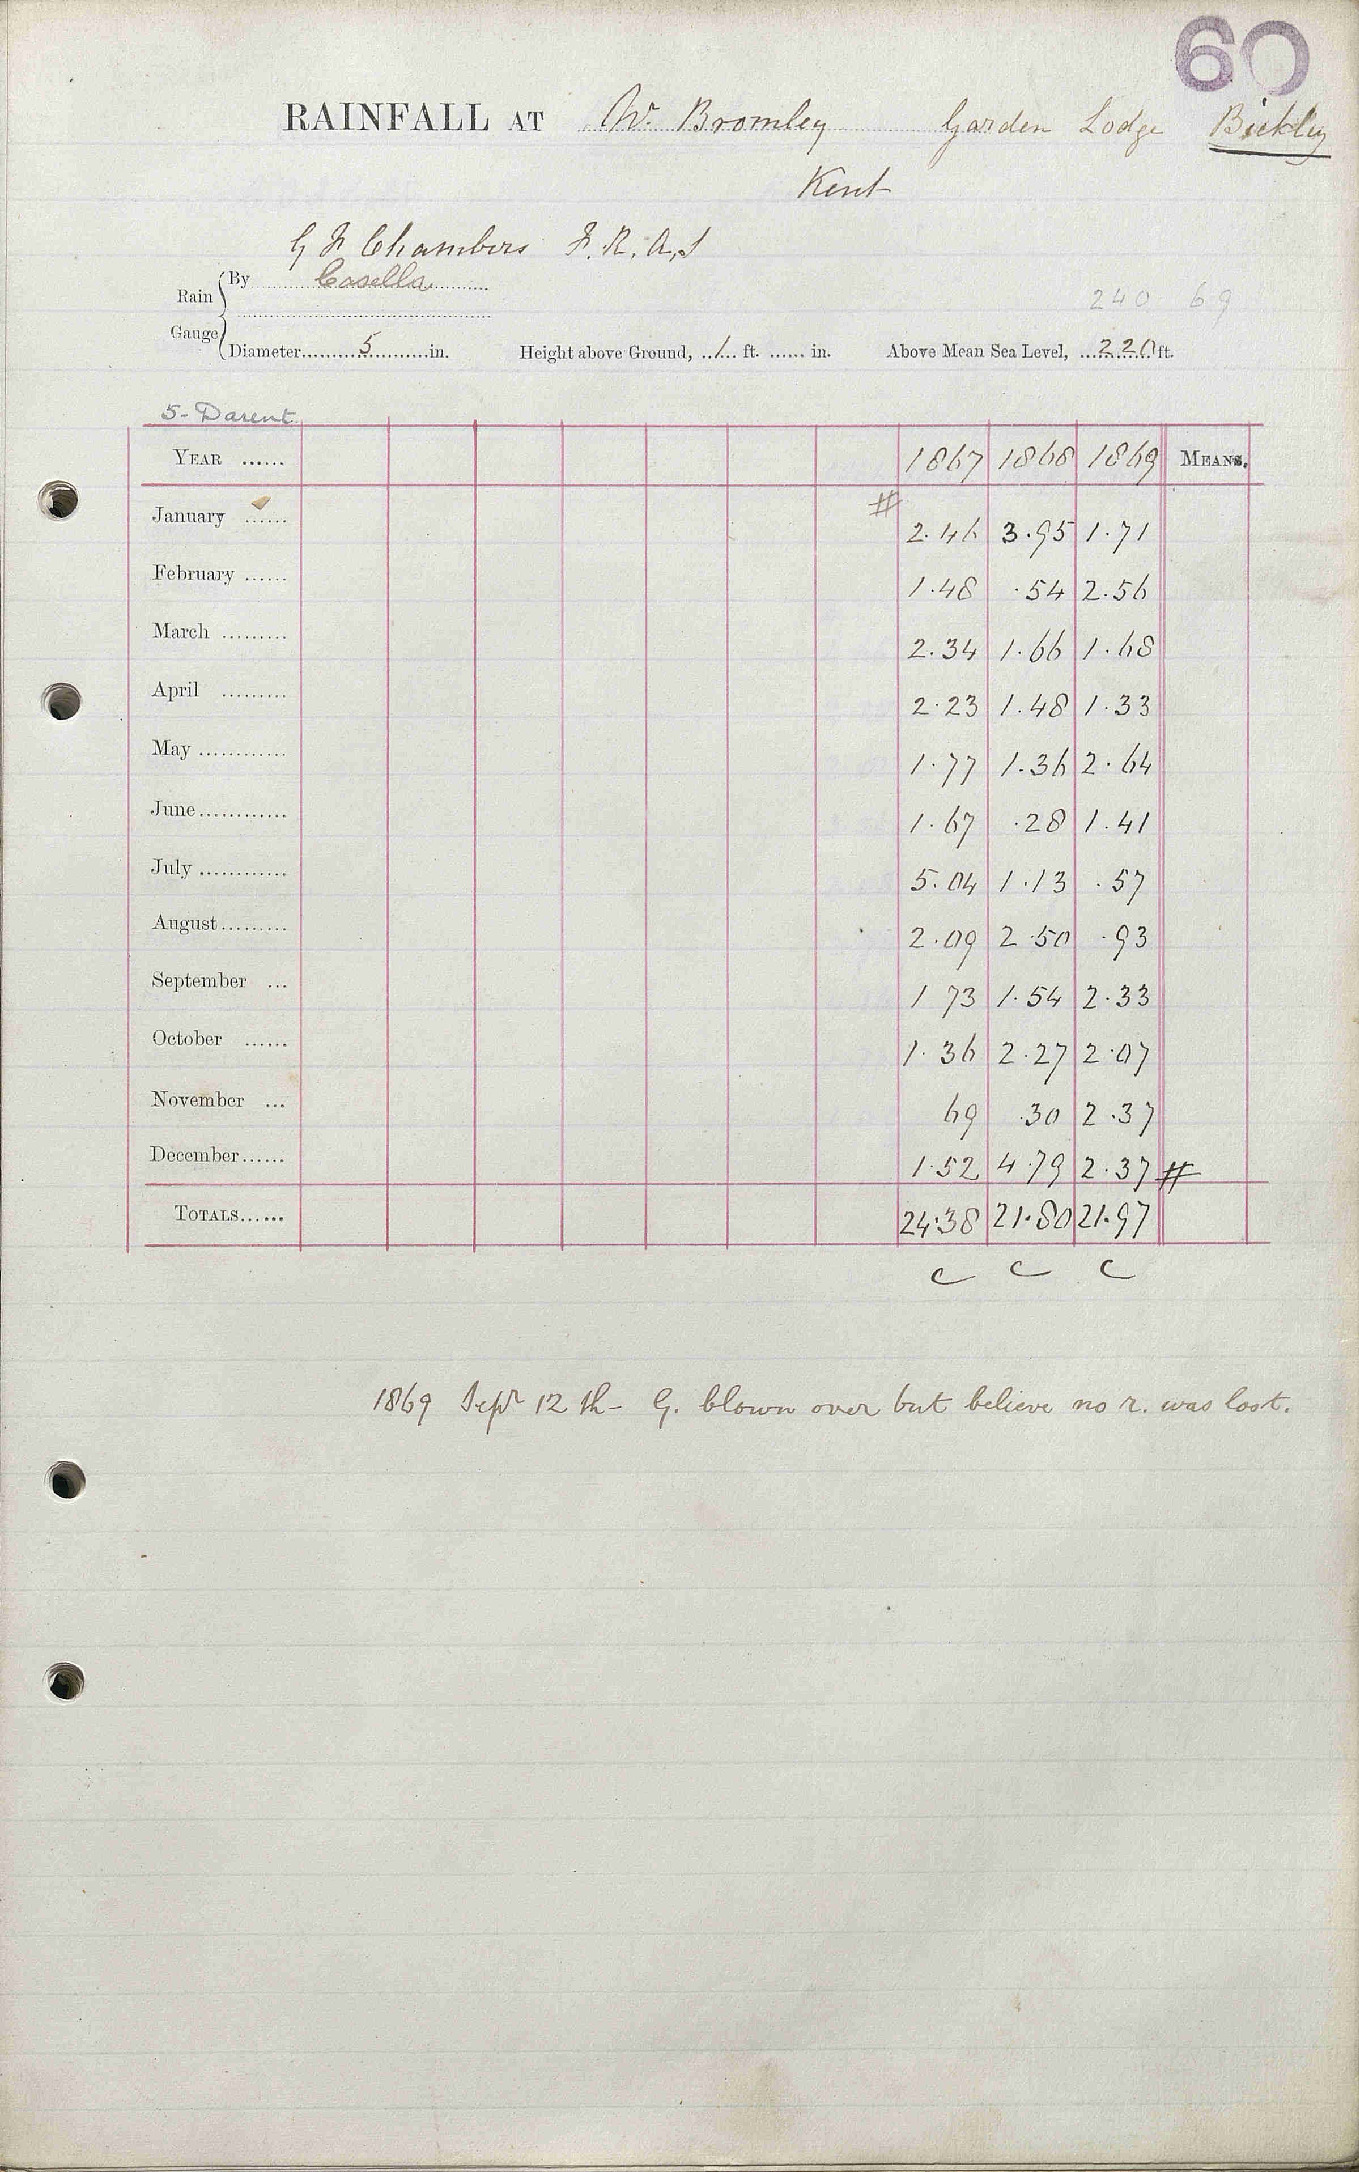 60
RAINFALL AT Nr. Bromley Garden Lodge Bickley
Kent
G F Chambers F.R.A.S
Rain Gauge By Casella
240 69
Diameter 5 in. Height above Ground, 1 ft. ...... in. Above Mean Sea Level, 220 ft.
5- Darent
YEAR ...... 1867 1868 1869 MEANS.
#
January ...... 2.46 3.95 1.71
February ...... 1.48 .54 2.56
March ......... 2.34 1.66 1.68
April ......... 2.23 1.48 1.33
May ............ 1.77 1.36 2.64
June............ 1.67 .28 1.41
July ............ 5.04 1.13 .57
August......... 2.09 2.50 .93
September ... 1 73 1.54 2.33
October ...... 1.36 2.27 2.07
November ... 69 .30 2.37
December...... 1.52 4.79 2.37 #
TOTALS...... 24.38 21.80 21.97
c c c
1869 Sept 12 th - G. blown over but believe no r. was lost.